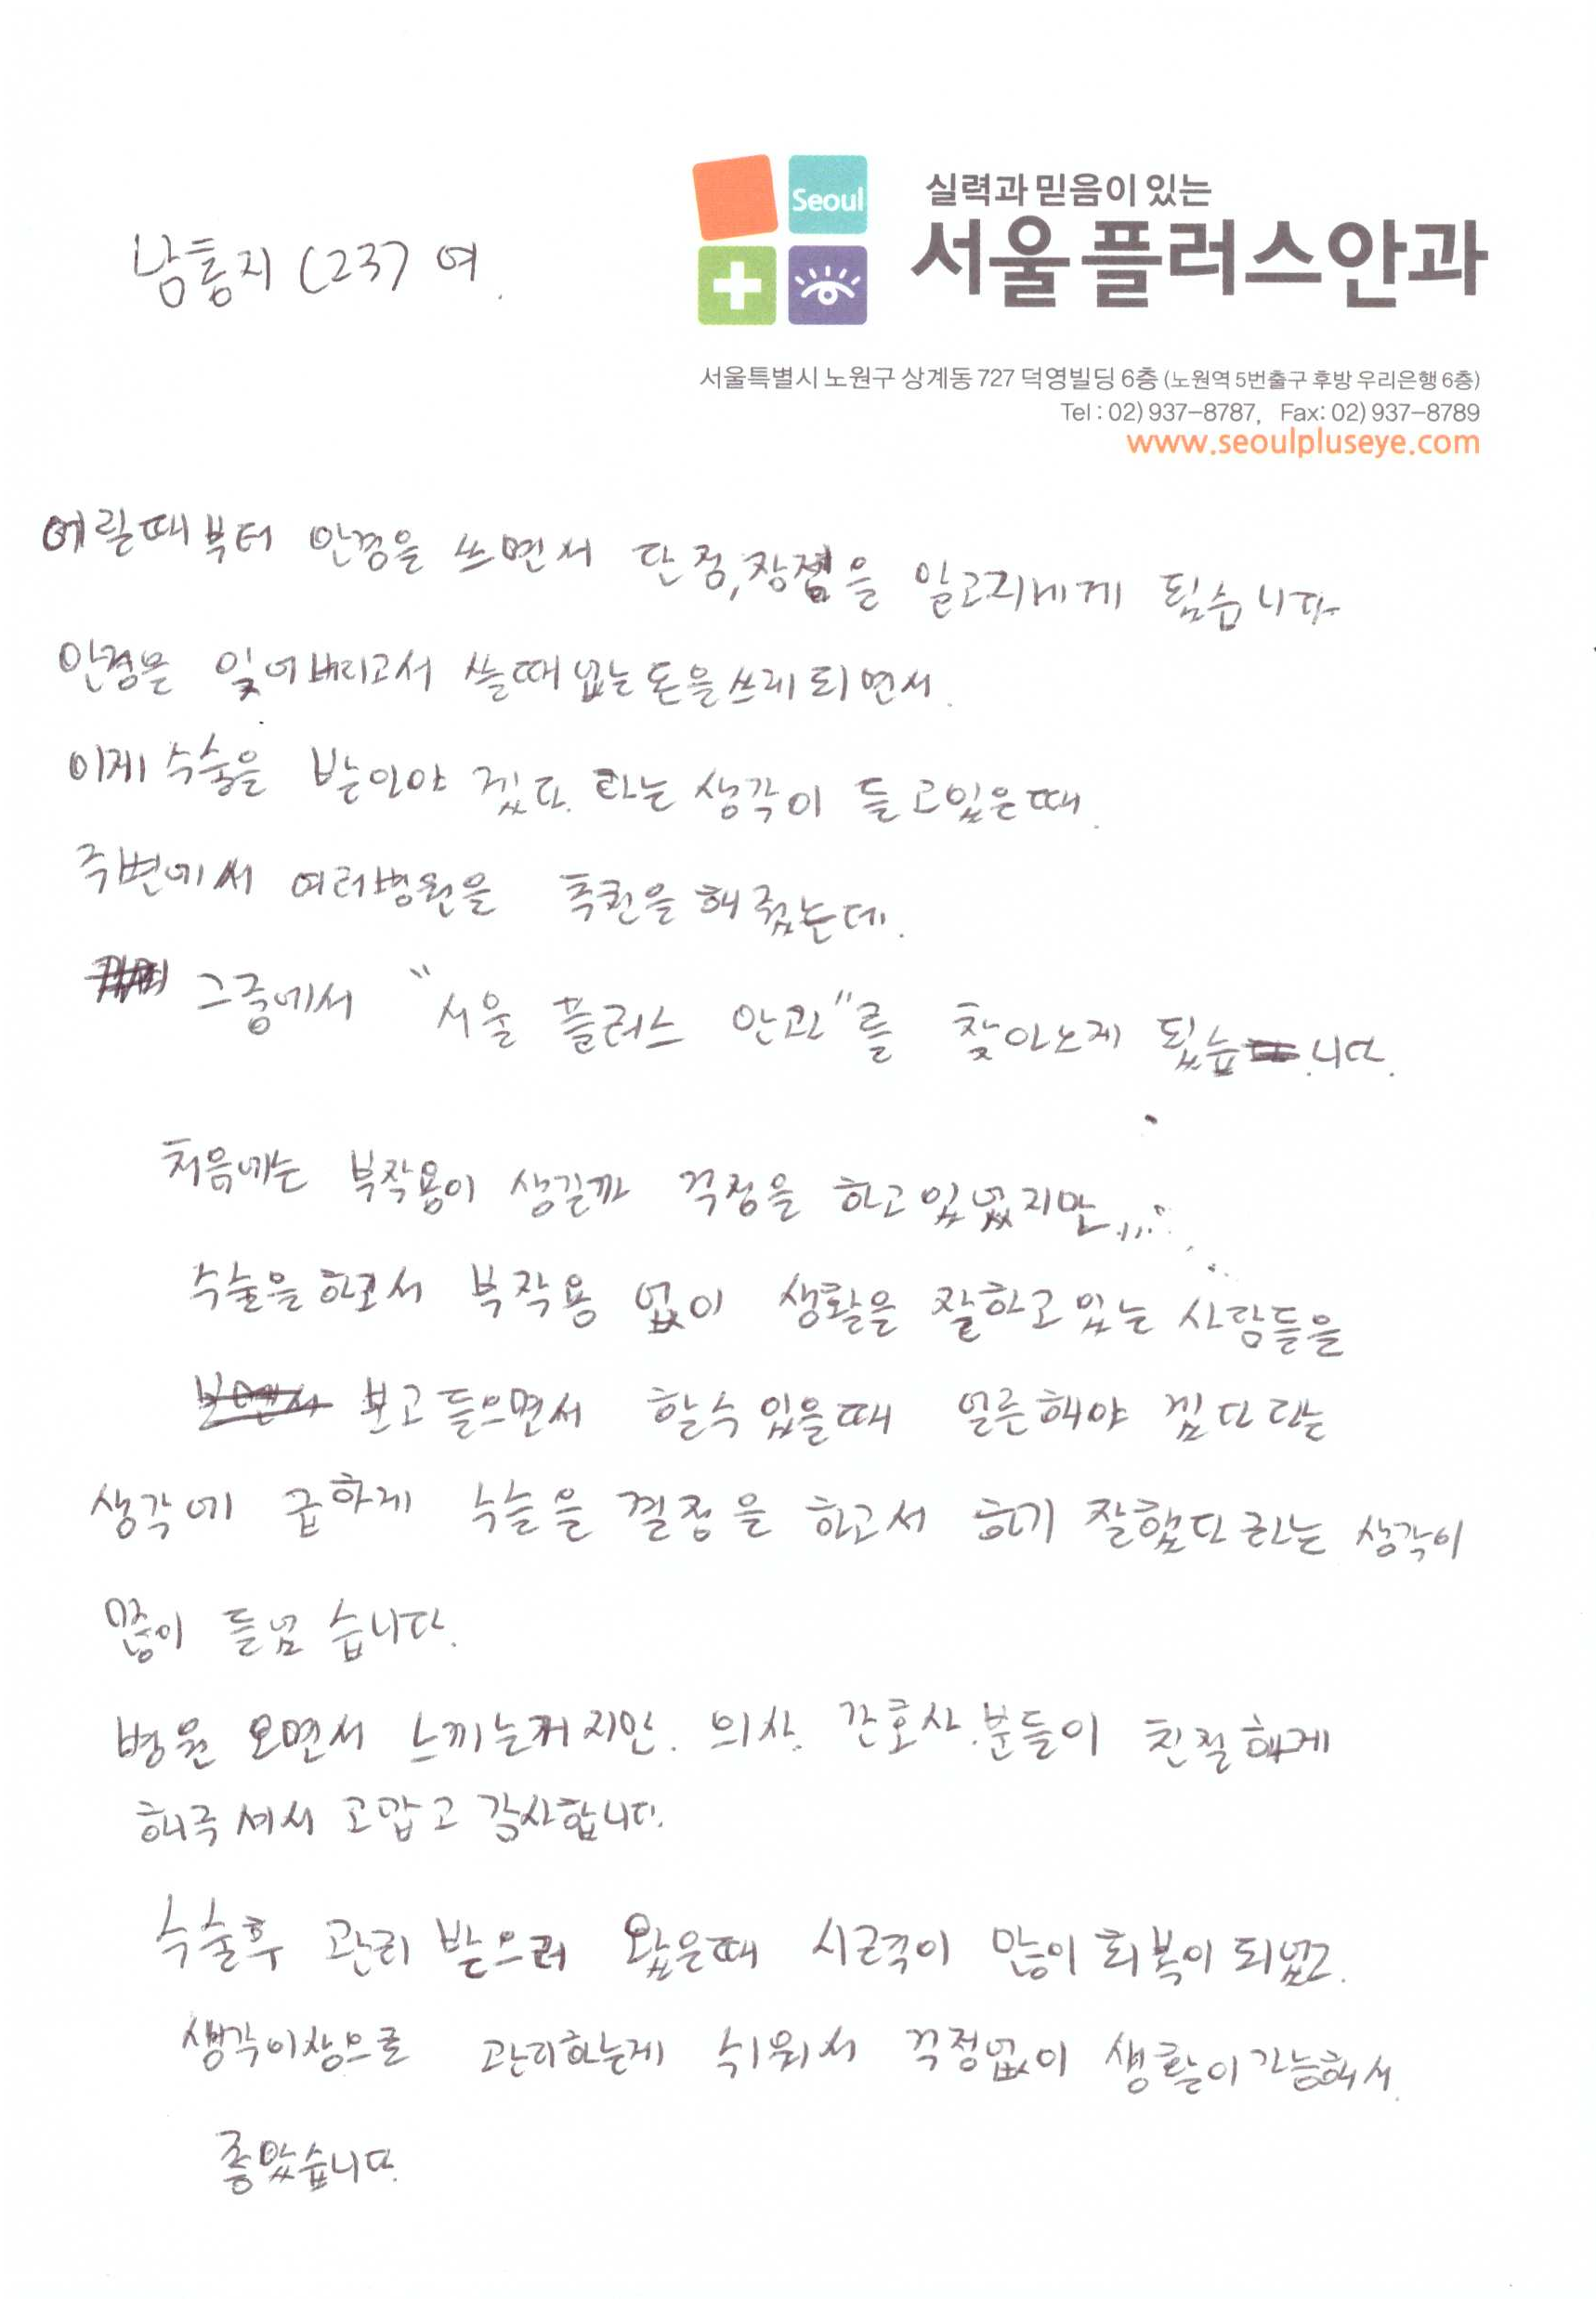 Seoul
실력과 믿음이 있는
서울플러스안과
남통지 (237 여.
서울특별시 노원구 상계동 727 덕영빌딩 6층 (노원역 5번출구 후방 우리은행 6층)
Tel : 02) 937-8787, Fax: 02) 937-8789
www.seoulpluseye.com
어릴때부터 안경을 쓰면서 단점,장점을 알고지내게 됬습니다
안경을 잊어버리고서 쓸때없는돈을쓰게되면서.
이제 수술을 받아야 겠다. 라는 생각이 들고있은때.
주변에서 여러병원을 추천을해줬는데.
그중에서 "서울 플러스 안과"를 찾아오게 됬습니다.
처음에는 부작용이 생길까 걱정을 하고있었지만....
수술을하고서 부작용 없이 생활을 잘하고있는 사람들을
보고들으면서 할수있을때 얼른해야 겠다라는
생각에 급하게 수술을 결정을 하고서 하기 잘했다라는 생각이
많이 들었습니다.
병원 오면서 느끼는거지만. 의사. 간호사.분들이 친절하게
해주셔서 고맙고 감사합니다.
수술후 관리 받으러 왔을때 시력이 많이회복이 되었고.
생각이상으로 관리하는게 쉬워서 걱정없이 생활이가능해서.
좋았습니다.